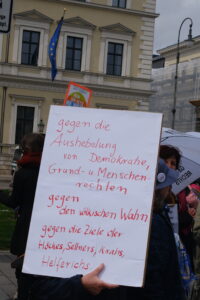 gegen die
Aushebelung
von Demokratie,
Grund- u Menschen-
rechten
gegen
den wokischen Wahn
gegen die Ziele der
Höckes, Sellners, Krahs,
Helferichs